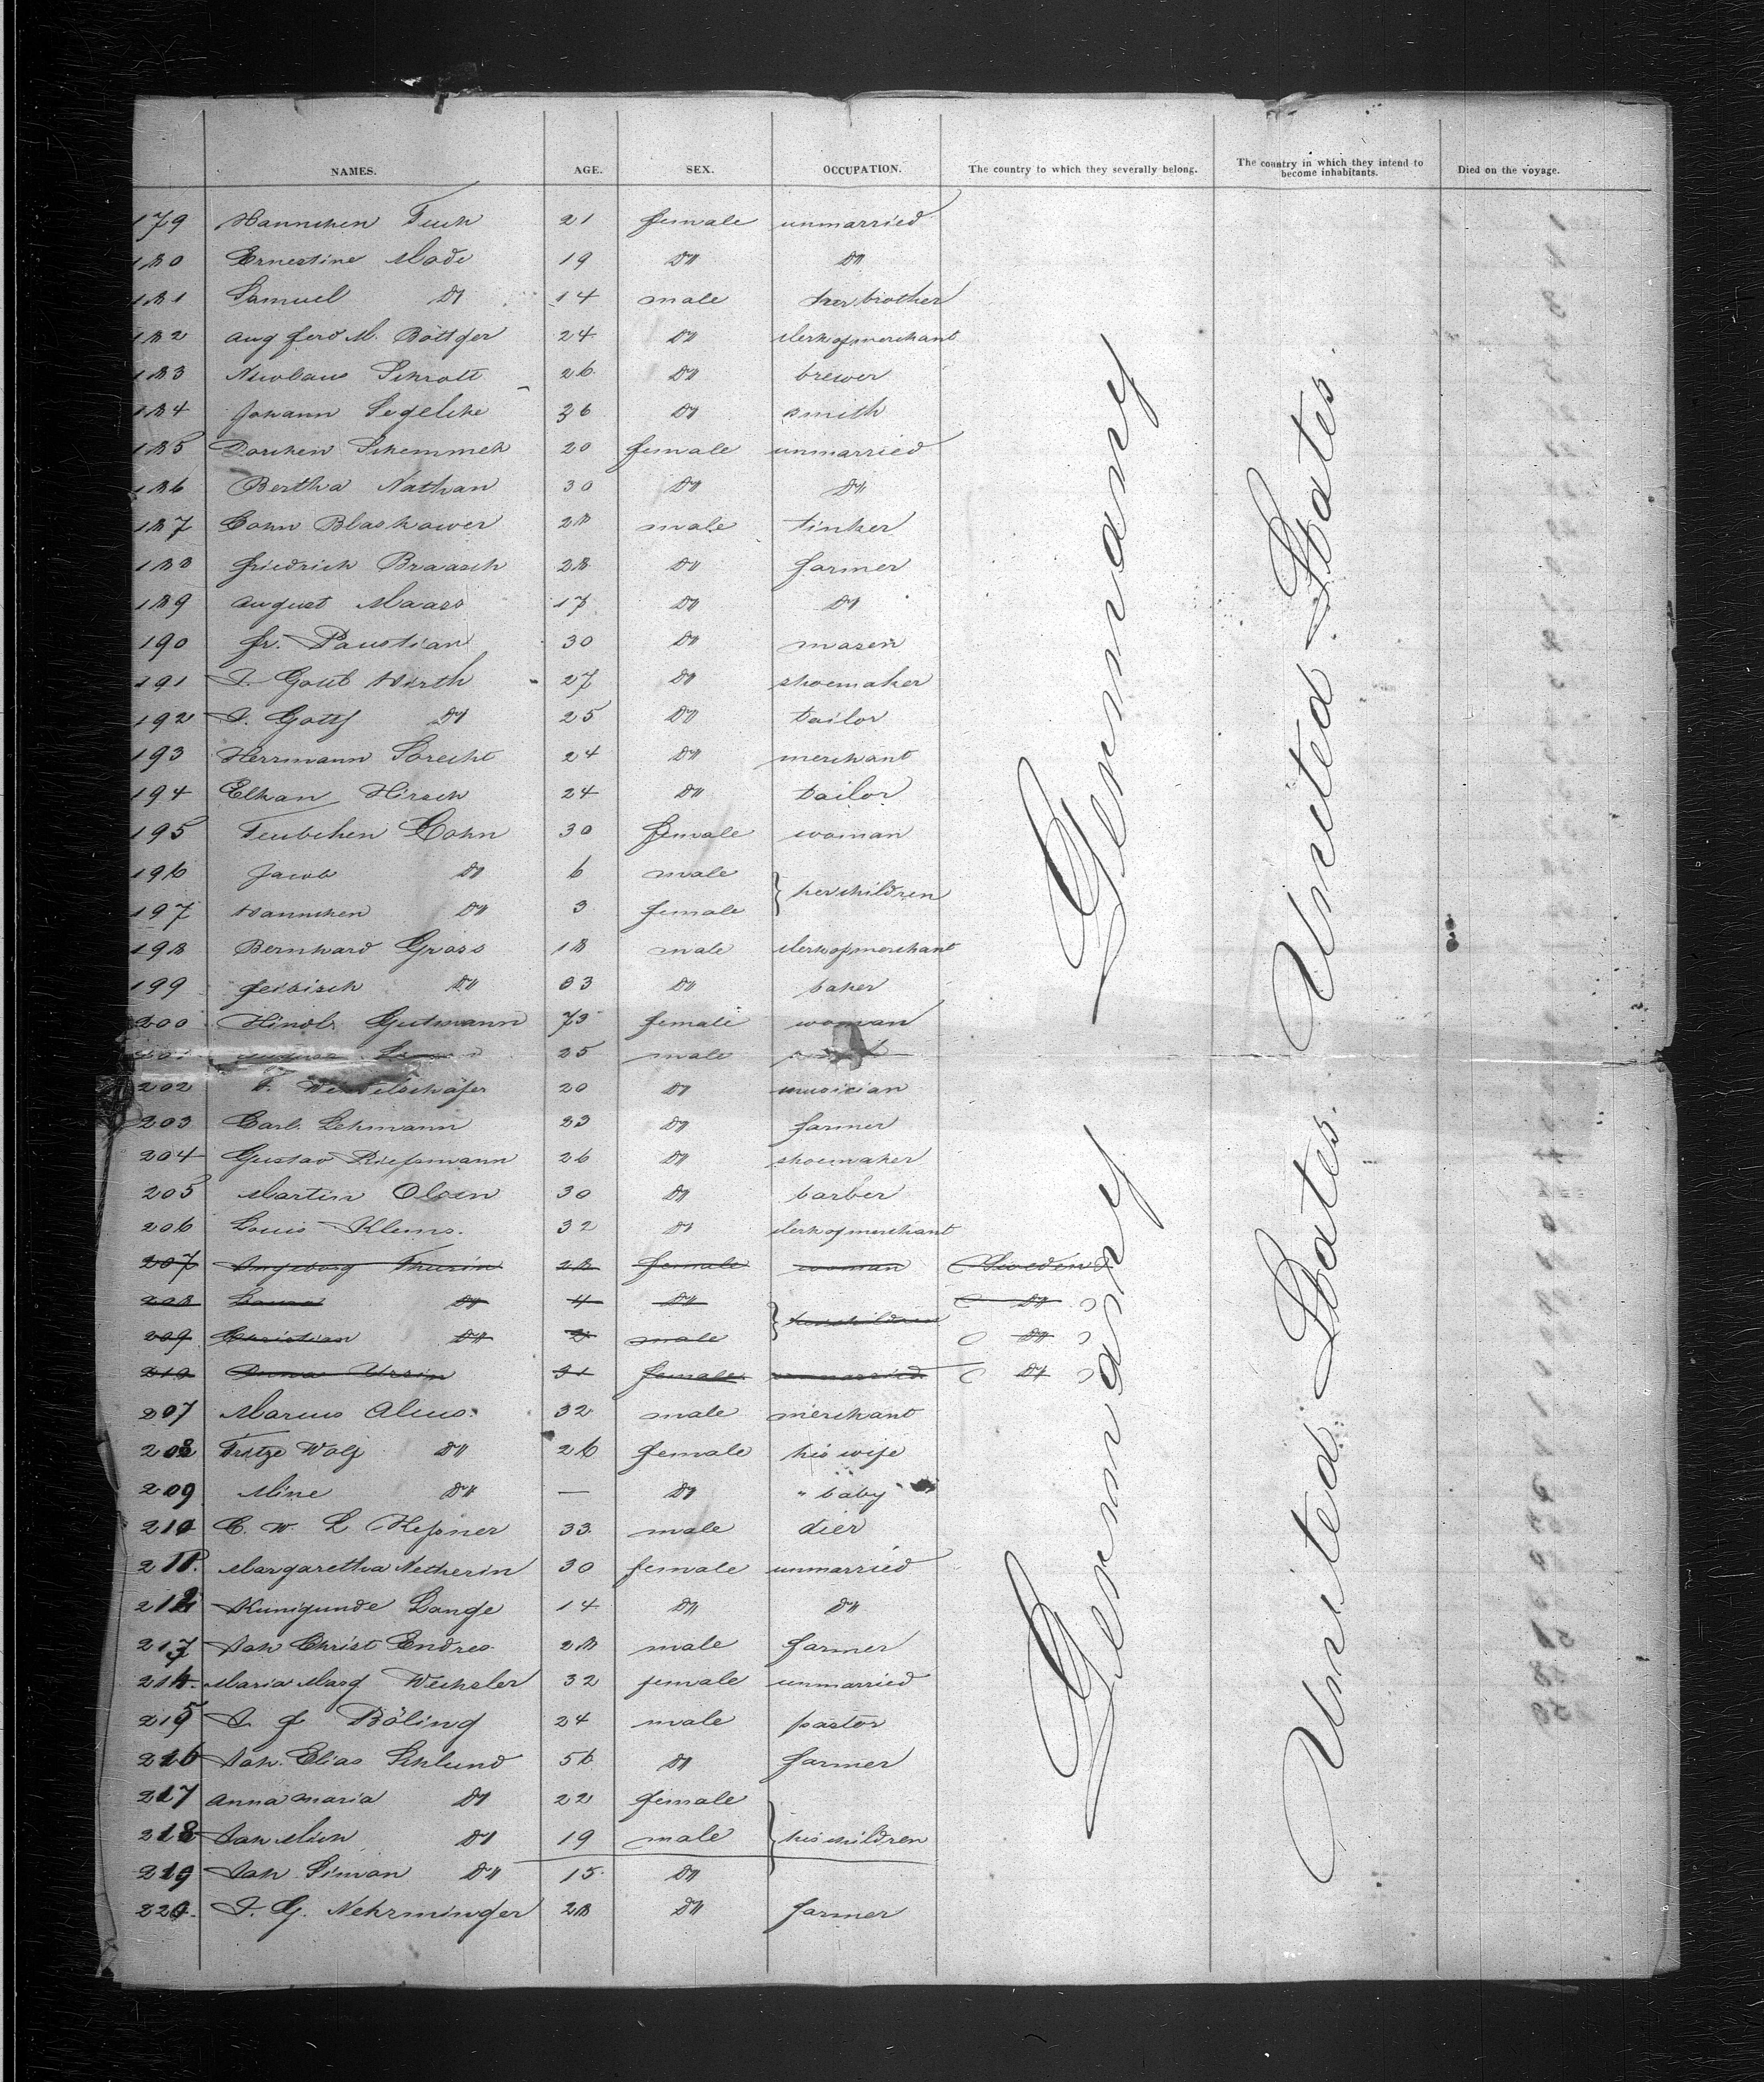 NAMES. AGE. SEX. OCCUPATION. The country to which they severally belong. The country in which they intend to become inhabitants. Died on the voyage.
179 Hannchen 21 female unmarried
180 Ernestine Made 19 Do Do
181 Samuel Do 14 male her brother
182 Aug Ferd M. Böttger 24 Do clerk of merchant
183 Nicolaus Schrott 26 Do brewer
184 Johann Segelche 36 Do smith
185 Dorchen Schemmeh 20 female unmarried
186 Bertha Nathan 30 Do Do
187 Cohn Blaskower 28 male tinker
188 Friedrich Braasch 28 Do farmer
189 August Maass 17 Do Do
190 Fr. Paustian 30 Do masen
191 J. Gottl Hirth 27 Do shoemaker
192 J. Gottf Do 25 Do tailor
193 Herrmann 24 Do merchant
194 Elkan Hirsch 24 Do tailor
195 Teubchen Cohn 30 female woman
196 Jacob Do 6 male
her children
197 Hannchen Do 3 female
198 Bernhard Gross 18 male clerk of merchant
199 Feibisch Do 33 Do baker
200 Hindl Gutmann 73 female woman
201 25 male
202 20 Do musician
203 Carl Lehmann 33 Do farmer
204 Gustav Riessmann 26 Do shoemaker
205 Martin Olsen 30 Do barber
206 Louis Klems. 32 Do clerk of merchant
207 Ingeborg Thurin 28 female woman Sweden
208 Do 4 Do Do
her children
209 Christian Do 2 male Do
210 Anna Ursin 31 female unmarried Do
207 Marcus Aleus. 32 male merchant
208 Fritze Wolf Do 26 female his wife
209 Mine Do — Do " baby
210 C. W. L Hessner 33 male dier
211 Margaretha Netherin 30 female unmarried
212 Kunigunde Lange 14 Do Do
213 Joh Christ Endres 28 male farmer
214 Maria Marg Wechsler 32 female unmarried
215 J. F Böling 24 male pastor
216 Joh. Elias Schlund 56 Do farmer
217 Anna Maria Do 22 female
218 Joh Mich Do 19 male his children
219 Joh Simon Do 15 Do
220 J. G. Nehrminger 28 Do farmer
Germany
Germany
United States.
United States.